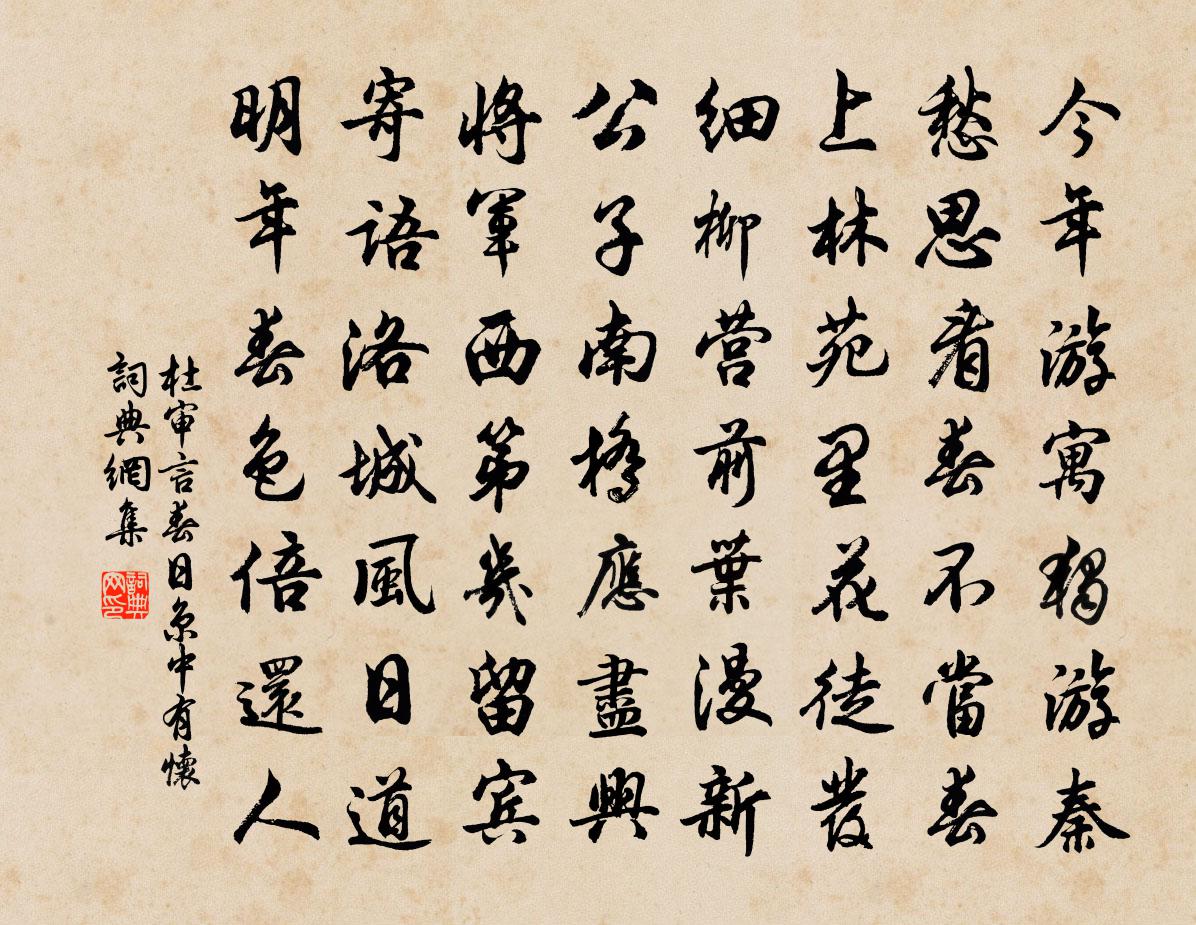 今年游寓獨游秦
愁思看春不當春
上林苑里花徒發
細柳營前葉漫新
公子南橋應盡興
將軍西第幾留賓
寄語洛城風日道
明年春色倍還人
杜审言春日京中有懷
詞典網集
詞典网印